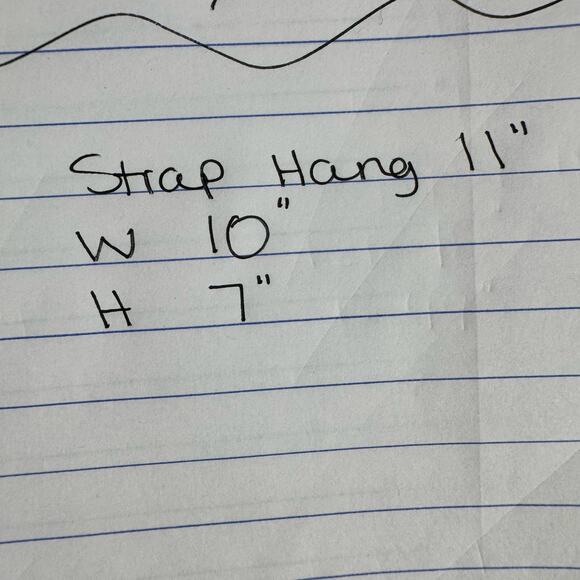 Strap Hang 11"
W 10"
H 7"